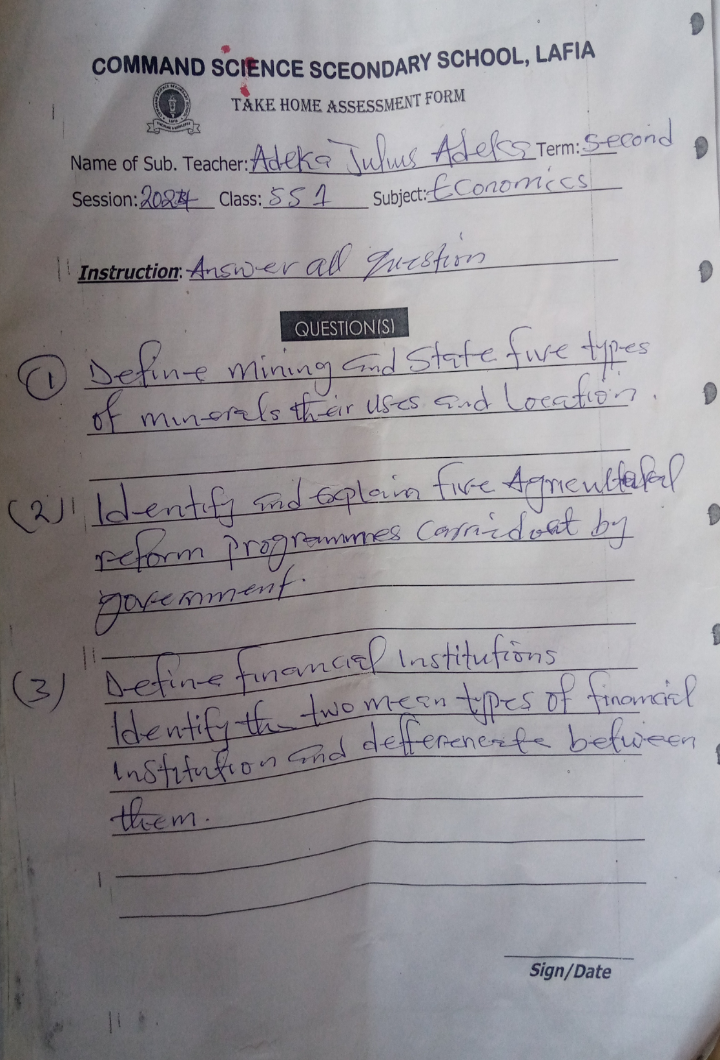 COMMAND SCIENCE SCEONDARY SCHOOL, LAFIA
TAKE HOME ASSESSMENT FORM
Name of Sub. Teacher: Adeka Julius Adeka Term: Second
Session: 2024 Class: SS 1 Subject: Economics
Instruction: Answer all question
QUESTION(S)
(1) Define mining and State five types
of minerals their uses and Location.
(2) Identify and explain five Agricultural
reform programmes carried out by
government.
(3) Define financial Institutions
Identify the two mean types of financial
institution and defferenciate between
them.
Sign/Date